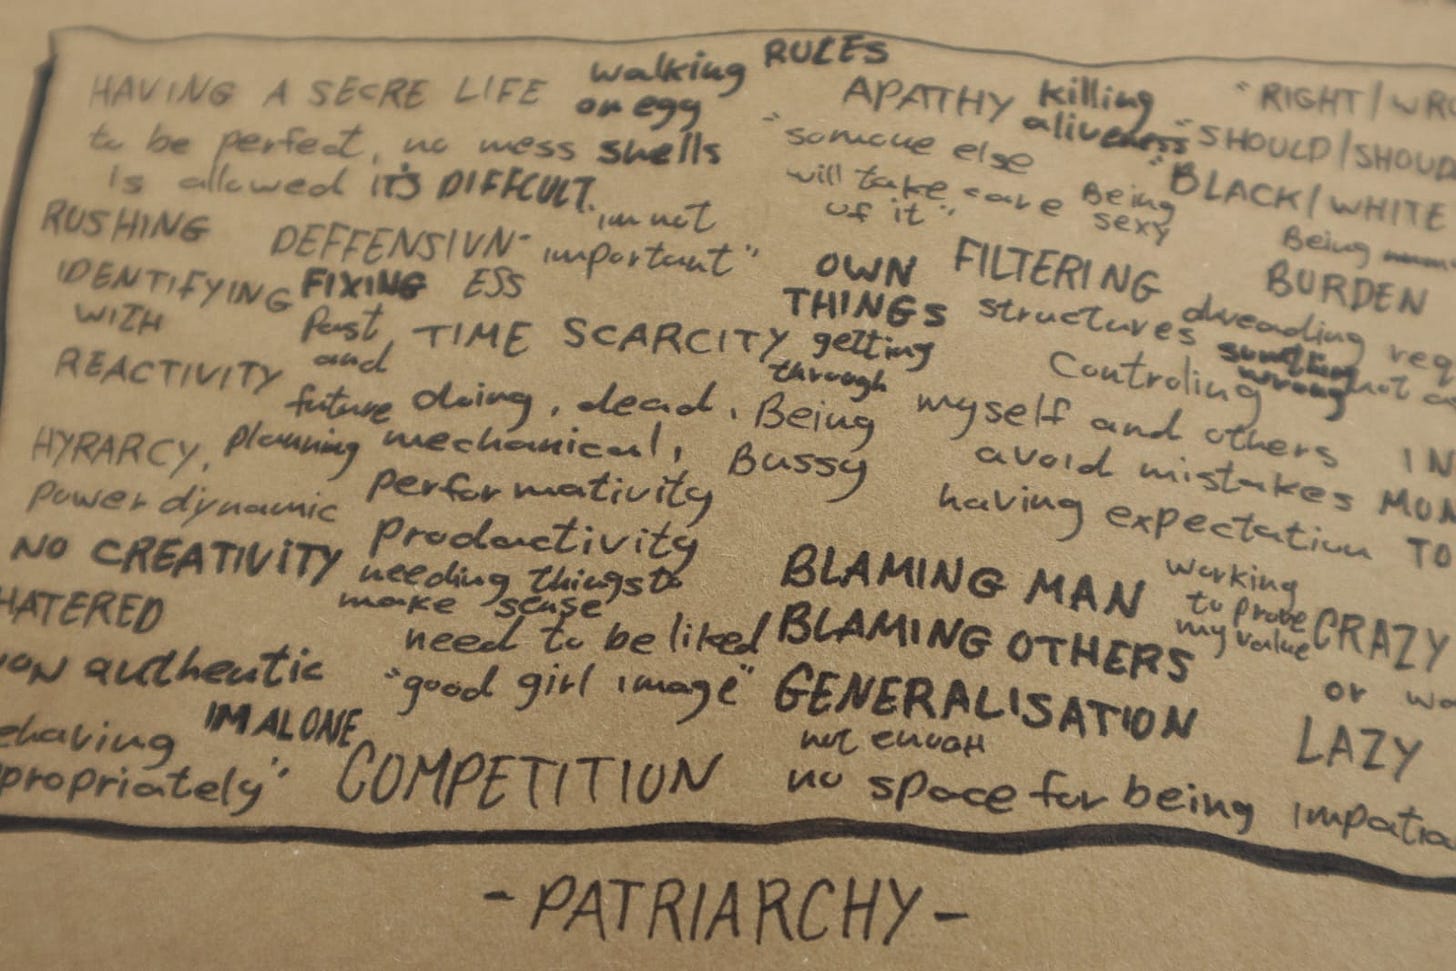 RULES
HAVING A SECRE LIFE
to be perfect, no mess
is allowed IT'S DIFFCULT.
walking
on egg
shells
APATHY
killing
aliveness
"RIGHT/WR
"SHOULD/SHOUD
"BLACK/WHITE
"somoue else
will take care
of it"
Being
sexy
RUSHING
DEFFENSIVN-
ESS
im not
important"
IDENTIFYING
WITH
REACTIVITY
FIXING
Past
and
future
planning
TIME SCARCITY
doing, dead, Being
mechanical, Bussy
OWN
THINGS
getting
through
FILTERING
structures
Being
BURDEN
dreading req
Controling
myself and others
avoid mistakes
having expectation
IN
MON
TO
HYRARCY,
power dynamic
NO CREATIVITY
HATERED
performativity
Productivity
needing things to
make sense
need to be liked
"good girl image"
BLAMING MAN
BLAMING OTHERS
GENERALISATION
working
to probe
my value
CRAZY
or wo
LAZY
NON authentic
IM ALONE
ehaving
propriately"
COMPETITION
not enough
no space for being
impatia
- PATRIARCHY -